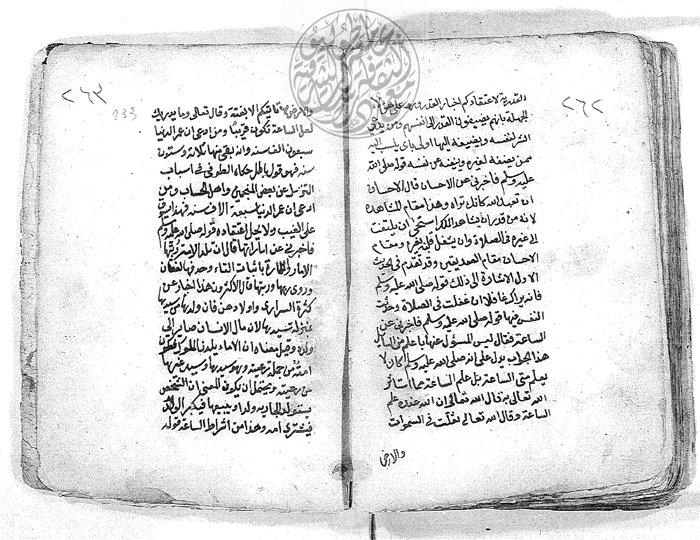 ٢٦٢
القدرية لاعتقادكم
الجهلة بانهم يضيفون القدر الى انفسهم ومن يدعي
الشر لنفسه ويضيفه اليها اولى بان ينسب اليه
ممن يضيفه لغيره وينفيه عن نفسه قوله صلى الله
عليه وسلم فاخبرني عن الاحسان قال الاحسان
ان تعبد الله كانك تراه وهذا مقام المشاهدة
لانه من قدر ان يشاهد الملك استحى ان يلتفت
الى غيره في الصلاة وان يشغل قلبه بغيره ومقام
الاحسان مقام الصديقين وقد تقدم في الحديث
الاول الاشارة الى ذلك قوله صلى الله عليه وسلم
فانه يراك غافلا ان غفلت في الصلاة وحدثت
النفس فيها قوله صلى الله عليه وسلم فاخبرني عن
الساعة فقال ليس المسؤل عنها باعلم من السائل
هذا الجواب يدل على انه صلى الله عليه وسلم كان لا
يعلم متى الساعة بل علم الساعة مما استأثر
الله تعالى به قال الله تعالى ان الله عنده علم
الساعة وقال الله تعالى ثقلت في السموات
والارض
٢٦٣
233
والارض لا تاتيكم الا بغتة وقال تعالى وما يدريك
لعل الساعة تكون قريبا ومن ادعى ان عمر الدنيا
سبعون الف سنة وانه بقي منها ثلاثة وستون
سنة فهو قول باطل حكاه الطوخي في اسباب
التنزيل عن بعض المنجمين واهل الحساب ومن
ادعى ان عمر الدنيا سبعة الاف سنة فهذا
على الغيب ولا يحل اعتقاده قوله صلى الله عليه وسلم
فاخبرني عن اماراتها قال ان تلد الامة ربتها
الامار والامارة باثبات التاء وحذفها لغتان
وروي ربها وربتها قال الاكثرون هذا اخبار عن
كثرة السراري واولادهن فان ولدها من سيدها
بمنزلة سيدها لان مال الانسان صائر الى
ولده وقيل معناه ان الاماء يلدن الملوك فتكون
امه من جملة رعيته وهو سيدها وسيد غيرها
من رعيته ويحتمل ان يكون المعنى ان الشخص
يستولد الجارية ولدا ويبيعها فيكبر الولد
فيشتري امه وهذا من اشراط الساعة قوله